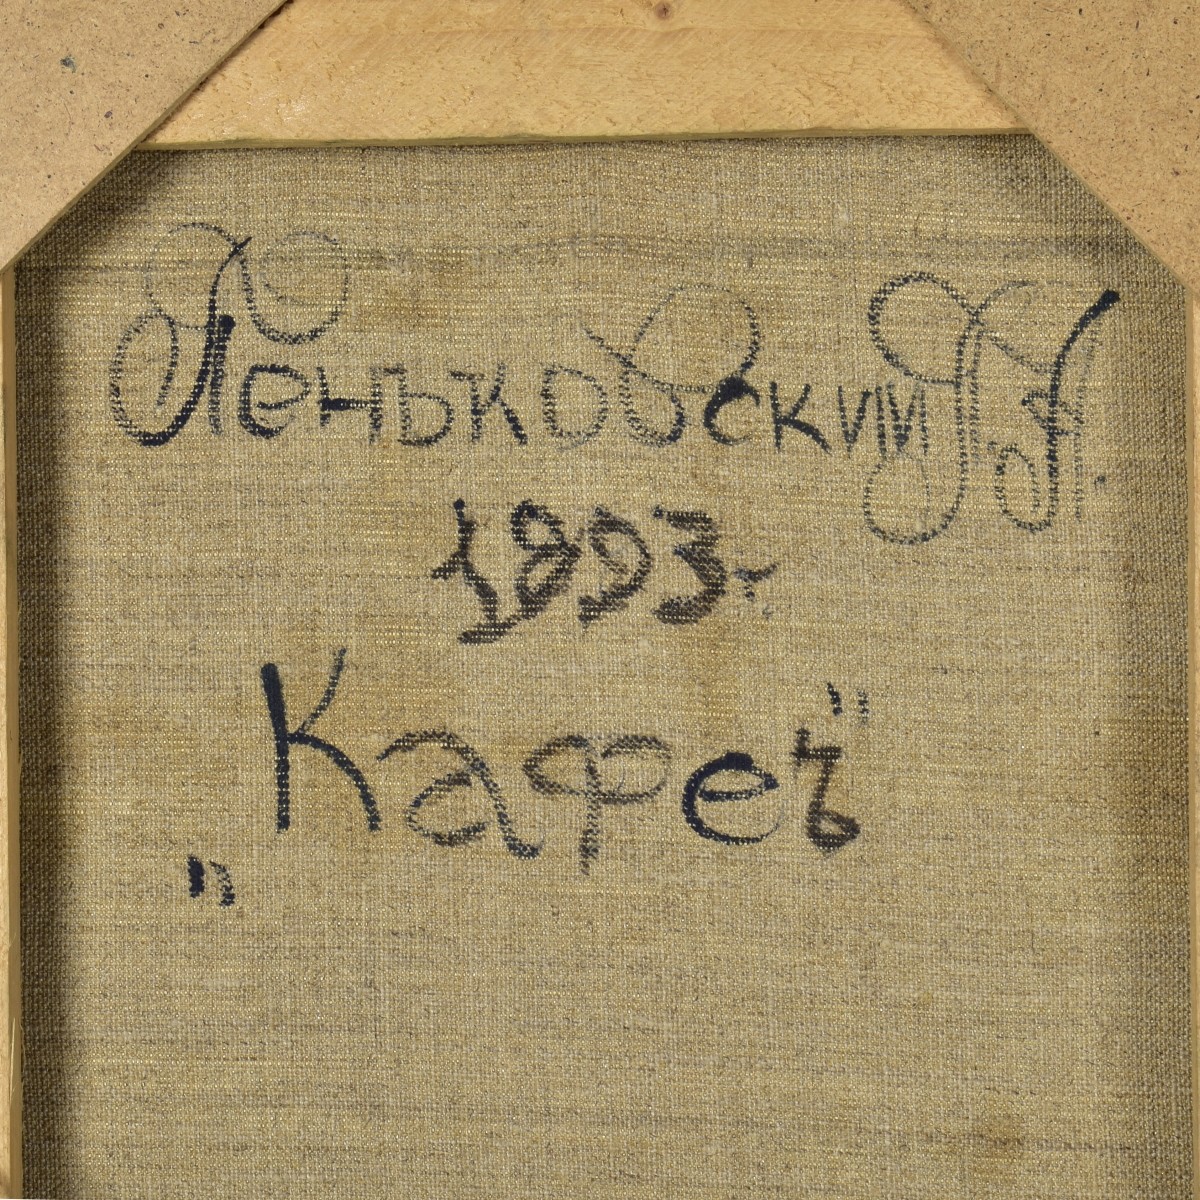 Леньковский
1893.
„Кафеъ"